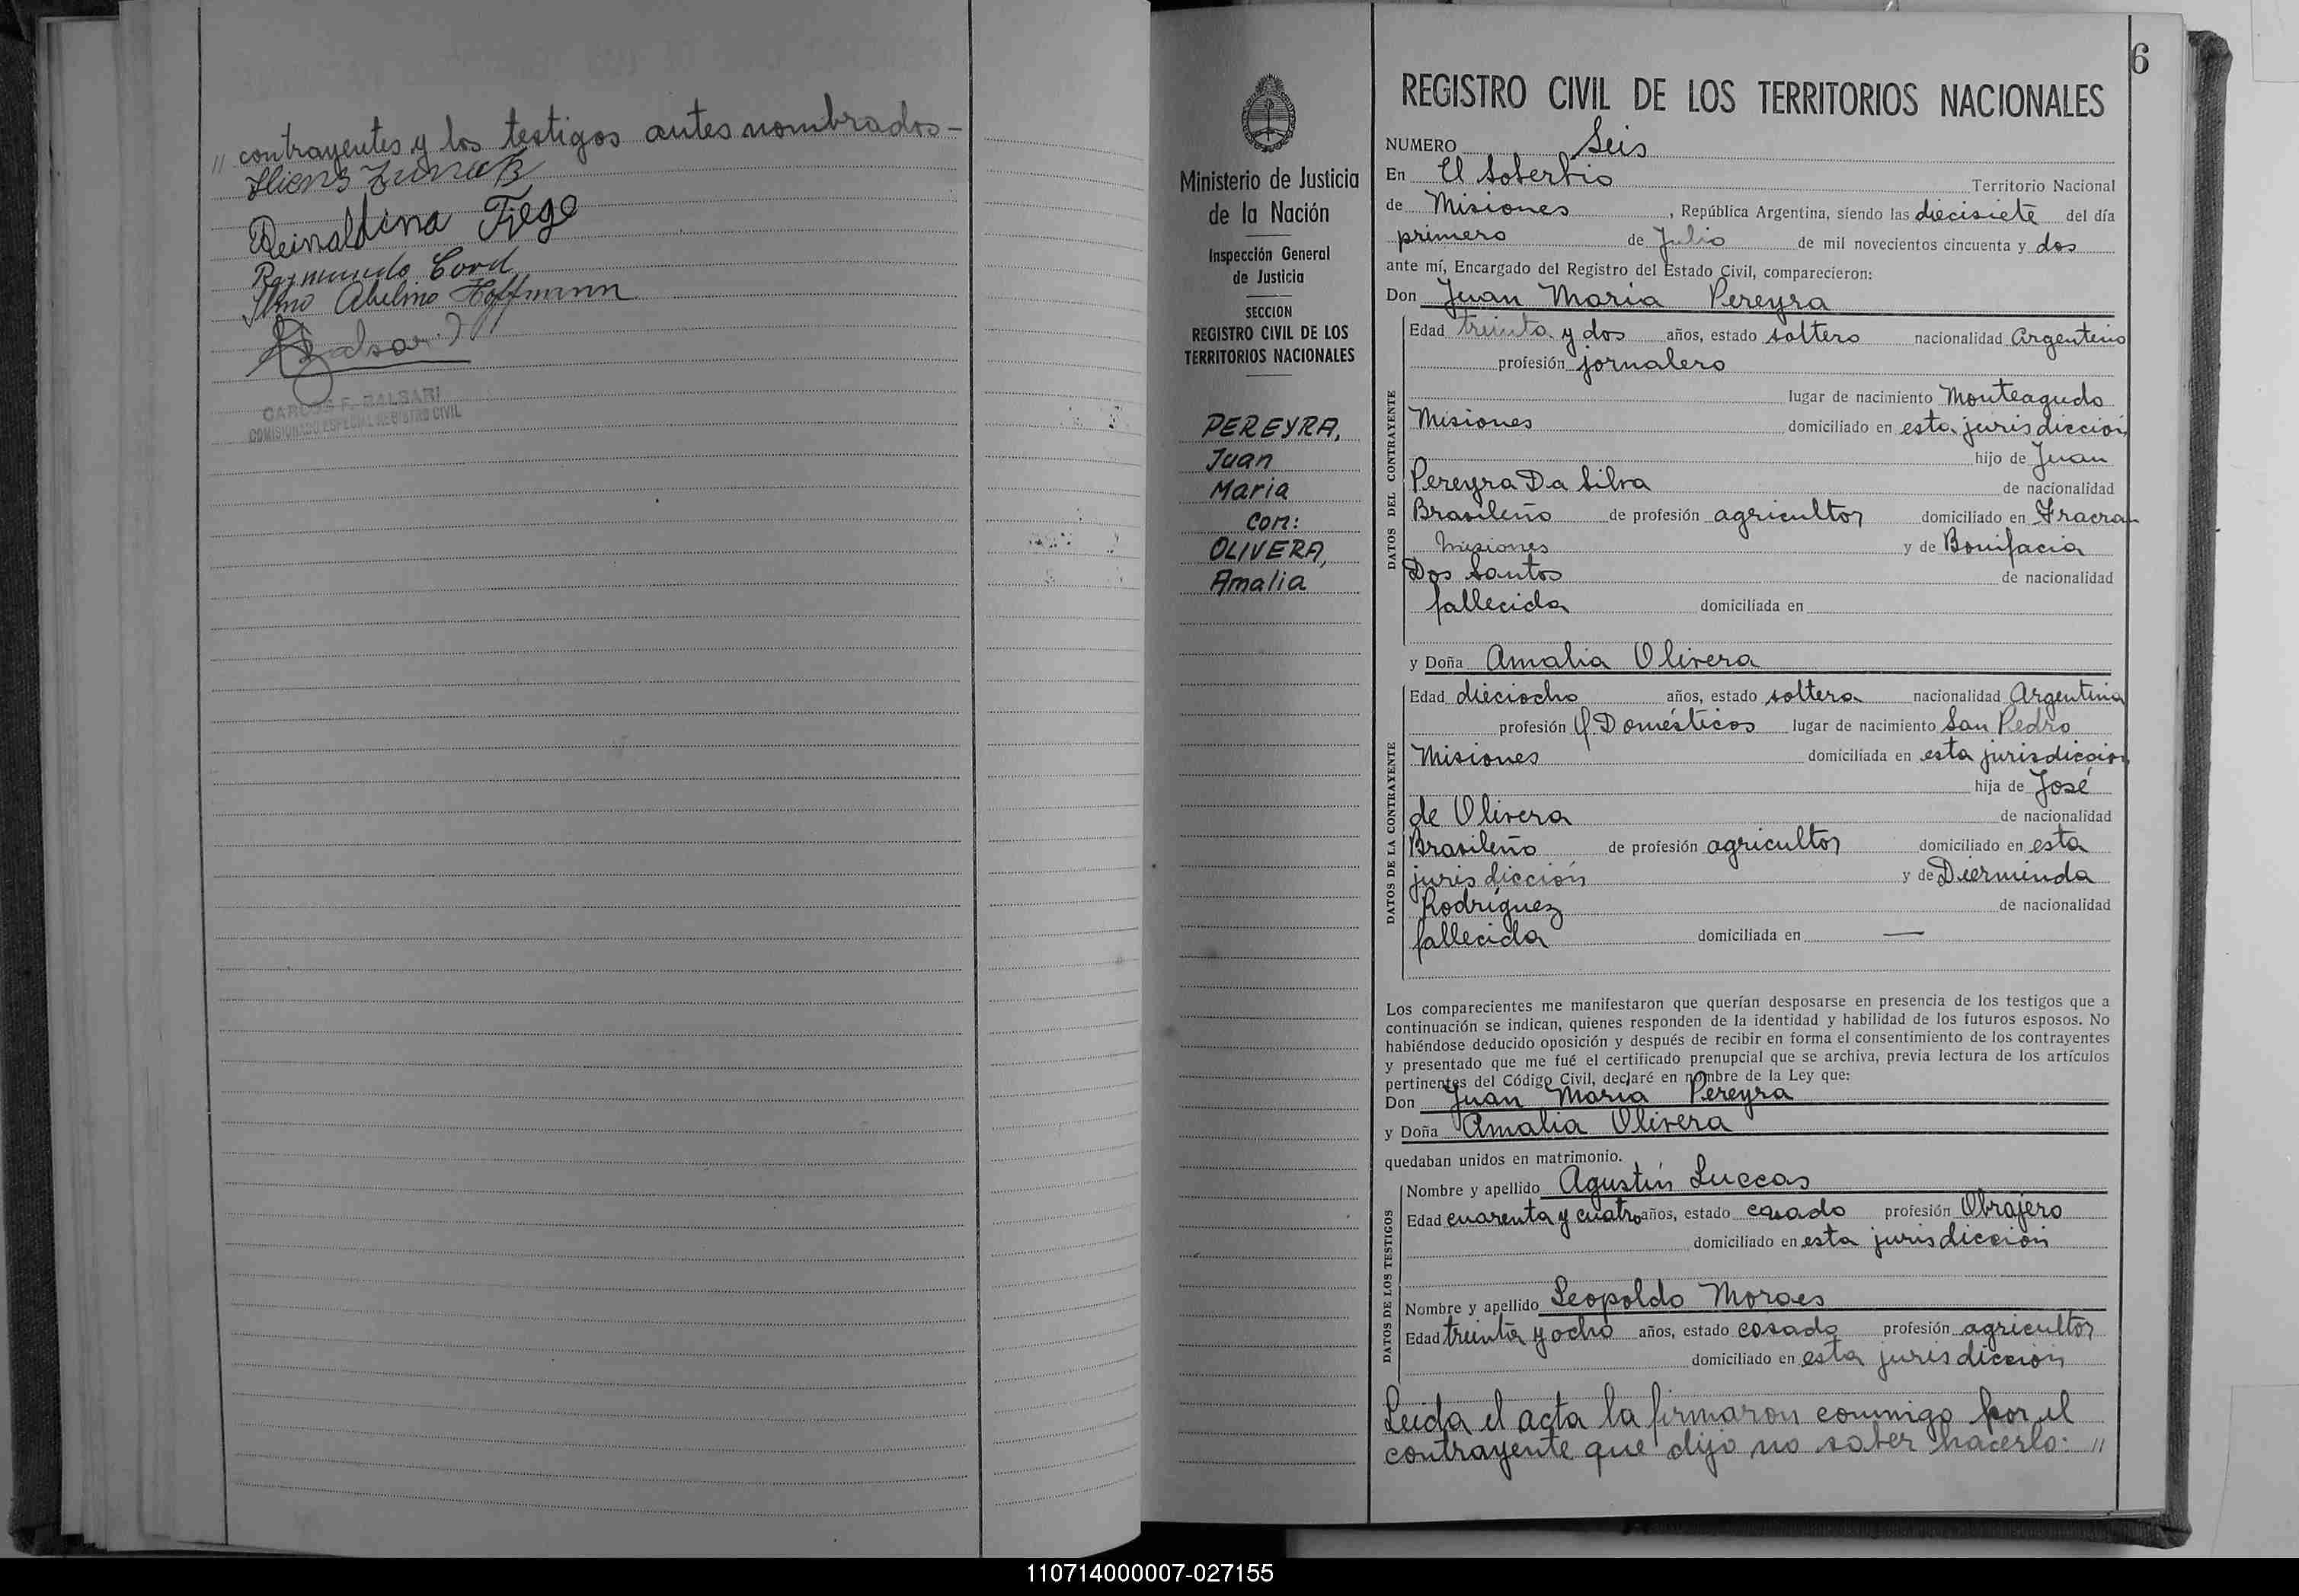 " contrayentes y los testigos antes nombrados -
Reinaldina Fiege
Raymundo
Abelino Hoffmann
CARLOS F. BALSARI
COMISIONADO ESPECIAL REGISTRO CIVIL
6
Ministerio de Justicia
de la Nación
Inspección General
de Justicia
SECCION
REGISTRO CIVIL DE LOS
TERRITORIOS NACIONALES
PEREYRA,
Juan
Maria
con:
OLIVERA,
Amalia
REGISTRO CIVIL DE LOS TERRITORIOS NACIONALES
NUMERO Seis
En El Soberbio Territorio Nacional
de Misiones, República Argentina, siendo las diecisiete del día
primero de Julio de mil novecientos cincuenta y dos
ante mí, Encargado del Registro del Estado Civil, comparecieron:
Don Juan Maria Pereyra
DATOS DEL CONTRAYENTE
Edad treinta y dos años, estado soltero nacionalidad Argentino
profesión jornalero
lugar de nacimiento Monteagudo
Misiones domiciliado en esta jurisdiccion
hijo de Juan
Pereyra Da Silva de nacionalidad
Brasileño de profesión agricultor domiciliado en Fracran
Misiones y de Bonifacia
Dos Santos de nacionalidad
fallecida domiciliada en
y Doña Amalia Olivera
DATOS DE LA CONTRAYENTE
Edad dieciocho años, estado soltera nacionalidad Argentina
profesión Q. Domésticos lugar de nacimiento San Pedro
Misiones domiciliada en esta jurisdiccion
hija de José
de Olivera de nacionalidad
Brasileño de profesión agricultor domiciliado en esta
jurisdicción y de Dierminda
Rodriguez de nacionalidad
fallecida domiciliada en —
Los comparecientes me manifestaron que querían desposarse en presencia de los testigos que a
continuación se indican, quienes responden de la identidad y habilidad de los futuros esposos. No
habiéndose deducido oposición y después de recibir en forma el consentimiento de los contrayentes
y presentado que me fué el certificado prenupcial que se archiva, previa lectura de los artículos
pertinentes del Código Civil, declaré en nombre de la Ley que:
Don Juan Maria Pereyra
y Doña Amalia Olivera
quedaban unidos en matrimonio.
DATOS DE LOS TESTIGOS
Nombre y apellido Agustín Luccas
Edad cuarenta y cuatro años, estado casado profesión Obrajero
domiciliado en esta jurisdicción
Nombre y apellido Leopoldo Moraes
Edad treinta y ocho años, estado casado profesión agricultor
domiciliado en esta jurisdiccion
Leida el acta la firmaron conmigo por el
contrayente que dijo no saber hacerlo: "
110714000007-027155